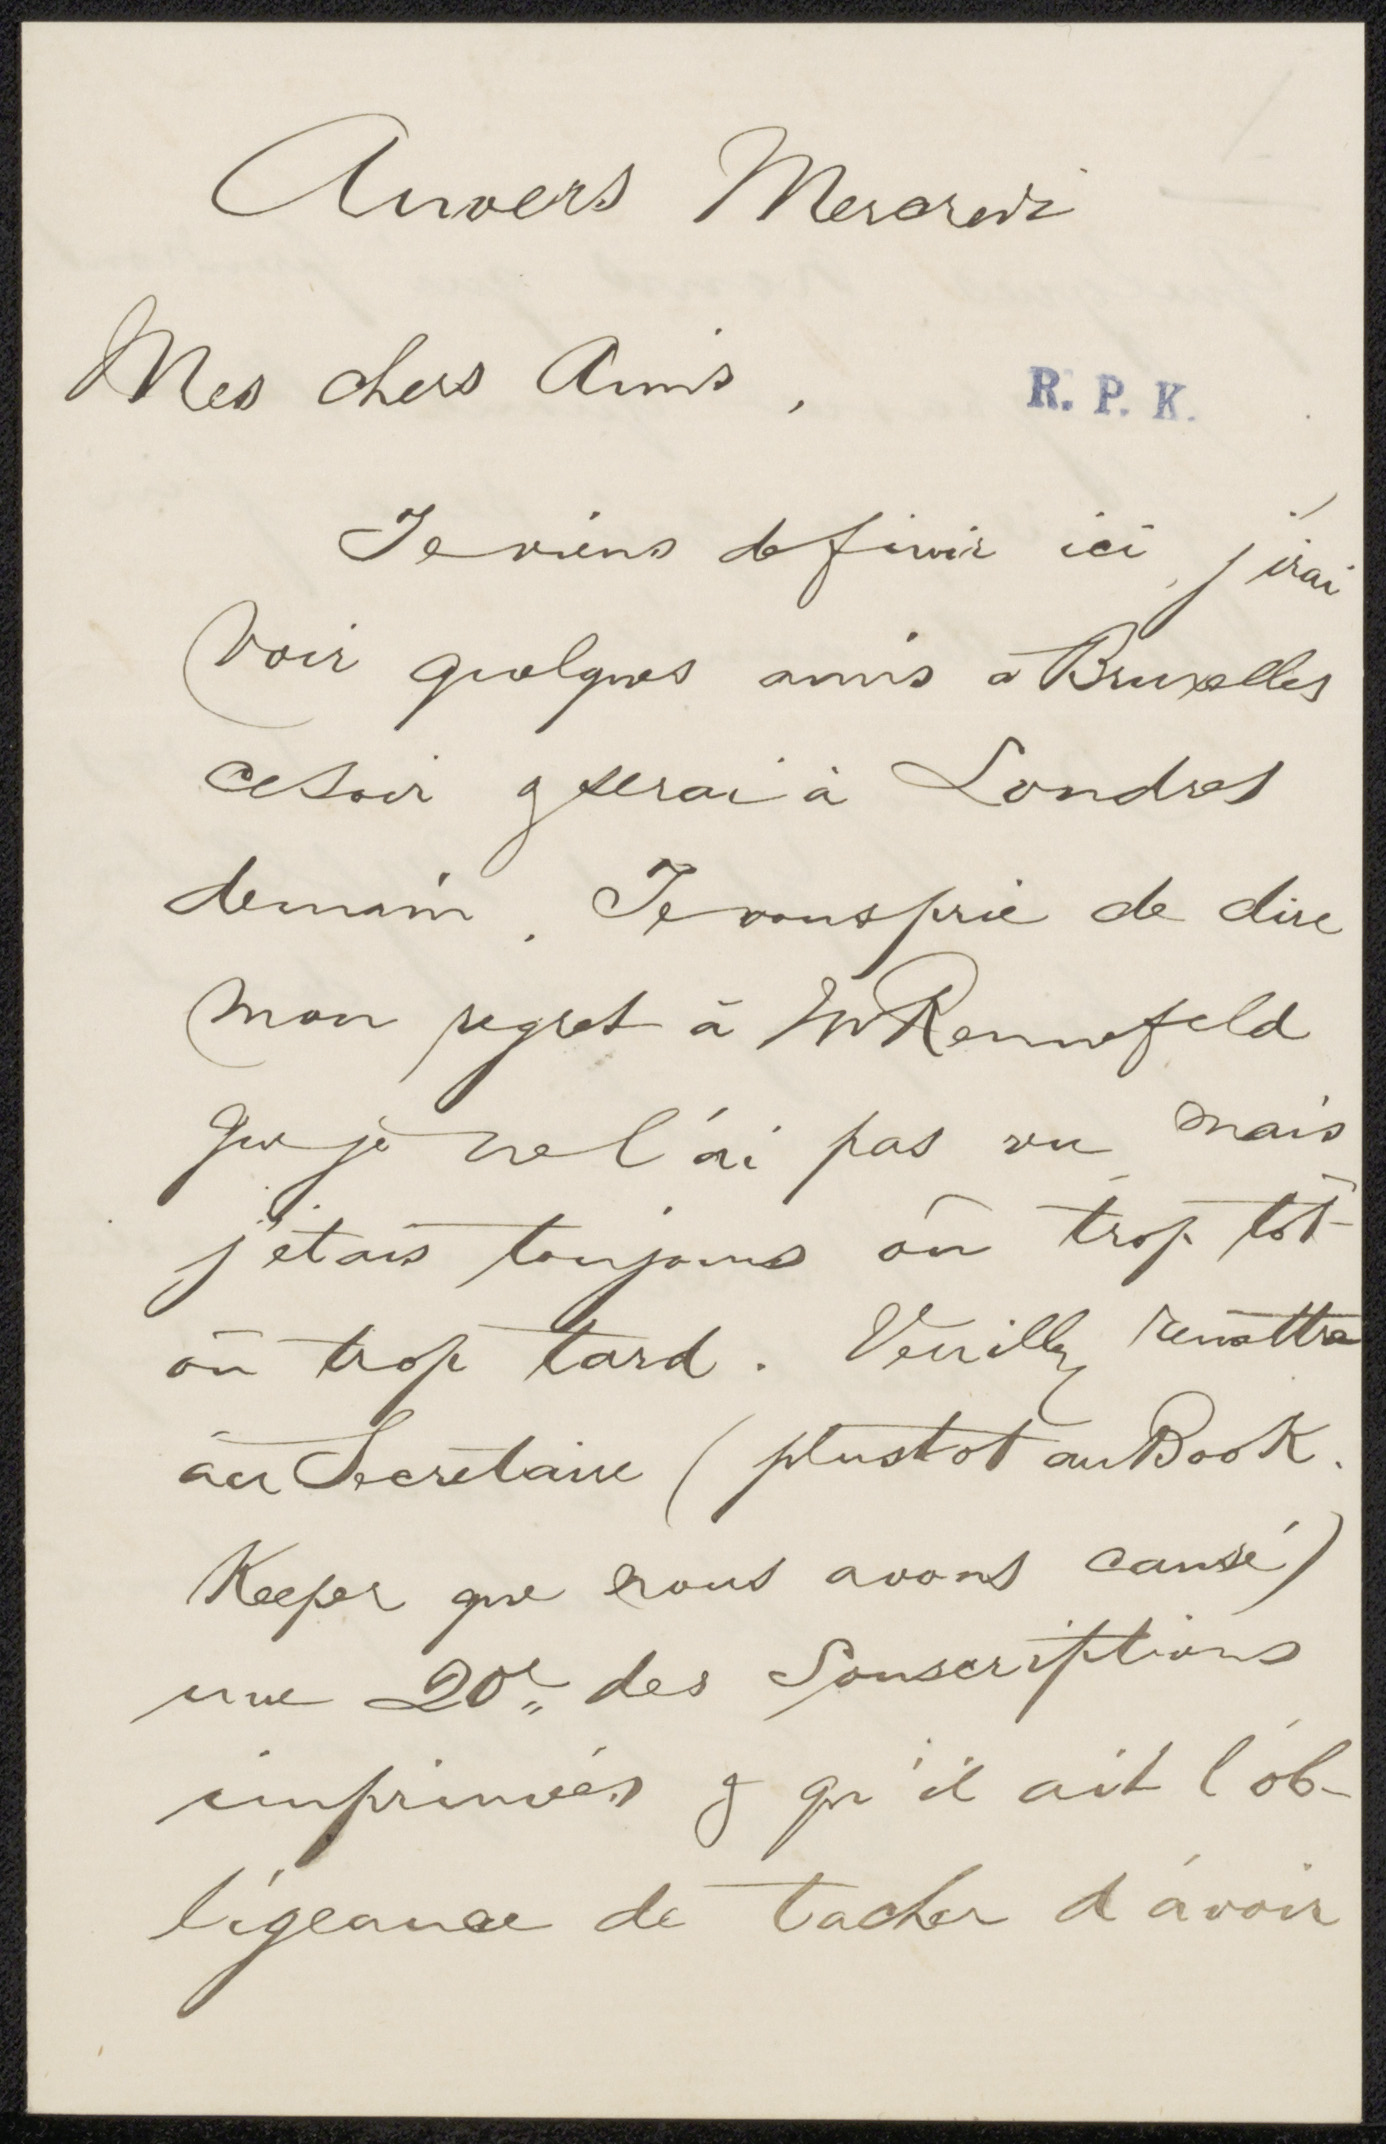 Anvers Mercredi
Mes chers Amis,
R. P. K.
Je viens de finir ici, j'irai
voir quelques amis à Bruxelles
ce soir & serai à Londres
demain. Je vous prie de dire
mon regret à Mr Rennefeld
que je ne l'ai pas vu, mais
j'etais toujours ou trop tôt
ou trop tard. Veuillez remettre
au Secretaire (plustot au Book.
Keeper que nous avons causé)
une 20e des Souscriptions
imprimées & qu'il ait l'ob-
ligeance de tacher d'avoir